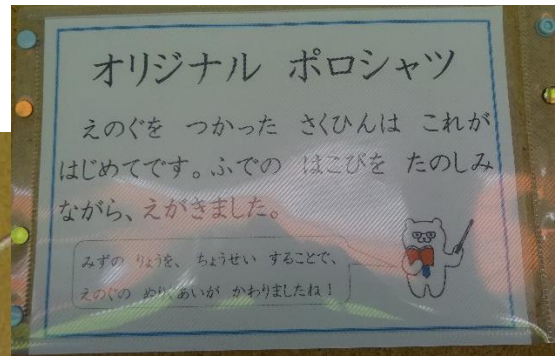 オリジナル ポロシャツ
えのぐを つかった さくひんは これが
はじめてです。ふでの はこびを たのしみ
ながら、えがきました。
みずの りょうを、ちょうせい することで、
えのぐの ぬりあいが かわりましたね!